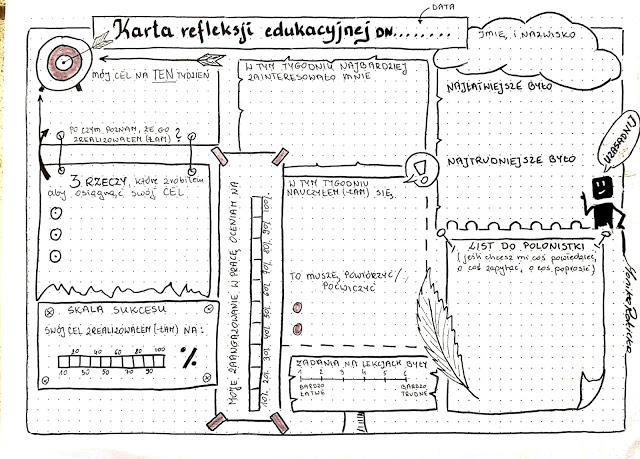 DATA
Karta refleksji edukacyjnej DN........
IMIĘ I NAZWISKO
MÓJ CEL NA TEN TYDZIEŃ
PO CZYM POZNAM, ŻE GO
ZREALIZOWAŁEM (-ŁAM)?
W TYM TYGODNIU NAJBARDZIEJ
ZAINTERESOWAŁO MNIE
NAJŁATWIEJSZE BYŁO
NAJTRUDNIEJSZE BYŁO
UZASADNIJ
3 RZECZY, które zrobiłem
aby osiągnąć swój CEL
MOJE ZAANGAŻOWANIE W PRACĘ OCENIAM NA
10% 20% 30% 40% 50% 60% 70% 80% 90% 100%
W TYM TYGODNIU
NAUCZYŁEM (-ŁAM) SIĘ
TO MUSZĘ POWTÓRZYĆ/
POĆWICZYĆ
LIST DO POLONISTKI
(jeśli chcesz mi coś powiedzieć,
o coś zapytać, o coś poprosić)
SKALA SUKCESU
SWÓJ CEL ZREALIZOWAŁEM (-ŁAM) NA:
20 40 60 80 100
10 30 50 70 90
%
ZADANIA NA LEKCJACH BYŁY
1 2 3 4 5 6
BARDZO ŁATWE
BARDZO TRUDNE